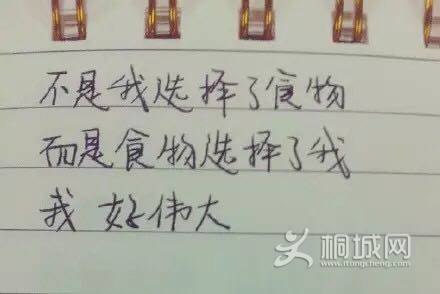 不是我选择了食物
而是食物选择了我
我好伟大
桐城网
www.itongcheng.com